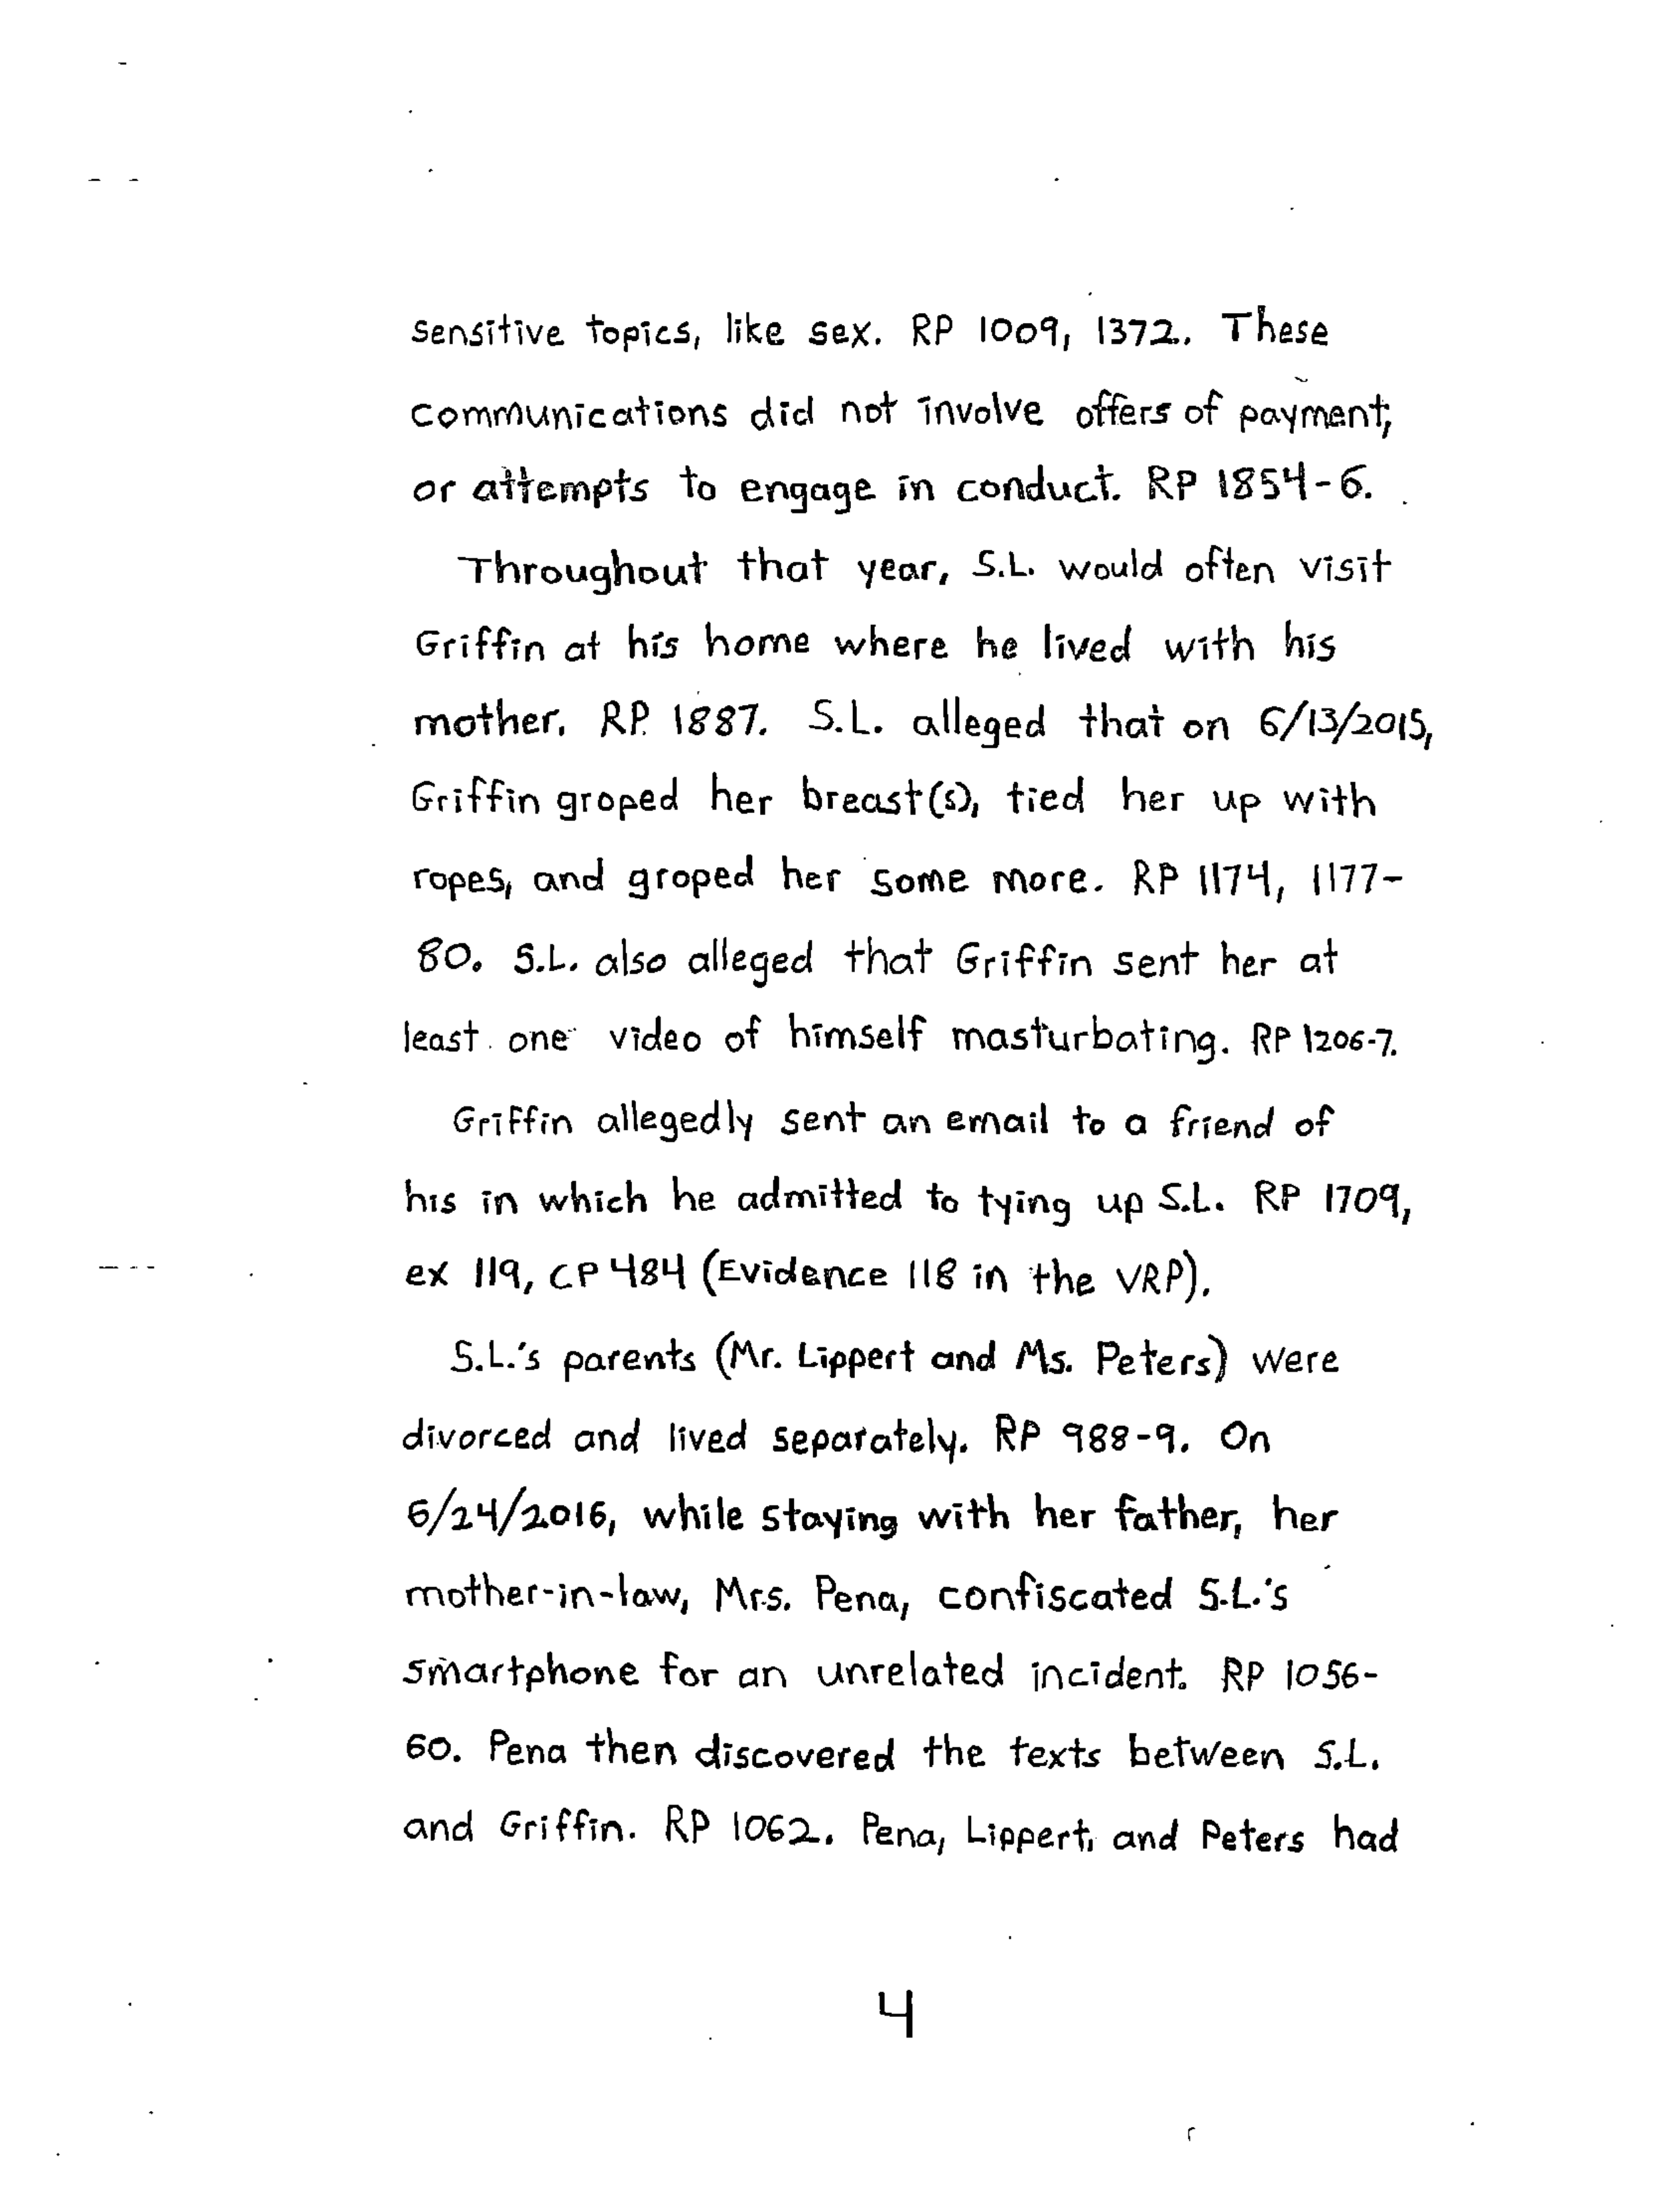 sensitive topics, like sex. RP 1009, 1372. These
communications did not involve offers of payment,
or attempts to engage in conduct. RP 1854-6.
Throughout that year, S.L. would often visit
Griffin at his home where he lived with his
mother. RP. 1887. S.L. alleged that on 6/13/2015,
Griffin groped her breast(s), tied her up with
ropes, and groped her some more. RP 1174, 1177-
80. S.L. also alleged that Griffin sent her at
least one video of himself masturbating. RP 1206-7.
Griffin allegedly sent an email to a friend of
his in which he admitted to tying up S.L. RP 1709,
ex 119, CP 484 (Evidence 118 in the VRP).
S.L.'s parents (Mr. Lippert and Ms. Peters) were
divorced and lived separately. RP 988-9. On
6/24/2016, while staying with her father, her
mother-in-law, Mrs. Pena, confiscated S.L.'s
smartphone for an unrelated incident. RP 1056-
60. Pena then discovered the texts between S.L.
and Griffin. RP 1062. Pena, Lippert, and Peters had
4